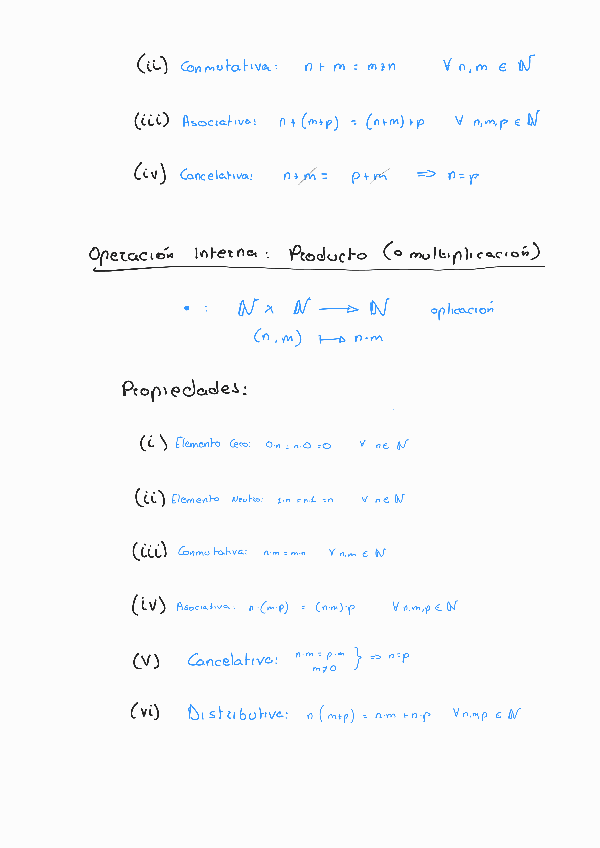 (ii) Conmutativa: n + m = m+n ∀ n,m ∈ ℕ
(iii) Asociativa: n + (m+p) = (n+m)+p ∀ n,m,p ∈ ℕ
(iv) Cancelativa: n+m = p+m => n=p
Operación Interna: Producto (o multiplicación)
• : ℕ x ℕ → ℕ aplicación
(n,m) ↦ n·m
Propiedades:
(i) Elemento Cero: 0·n = n·0 = 0 ∀ n∈ ℕ
(ii) Elemento Neutro: 1·n = n·1 = n ∀ n∈ ℕ
(iii) Conmutativa: n·m = m·n ∀ n,m ∈ ℕ
(iv) Asociativa: n (m·p) = (n·m)·p ∀ n,m,p ∈ ℕ
(v) Cancelativa: n·m = p·m } => n=p
m≠0
(vi) Distributiva: n (m+p) = n·m + n·p ∀ n,m,p ∈ ℕ